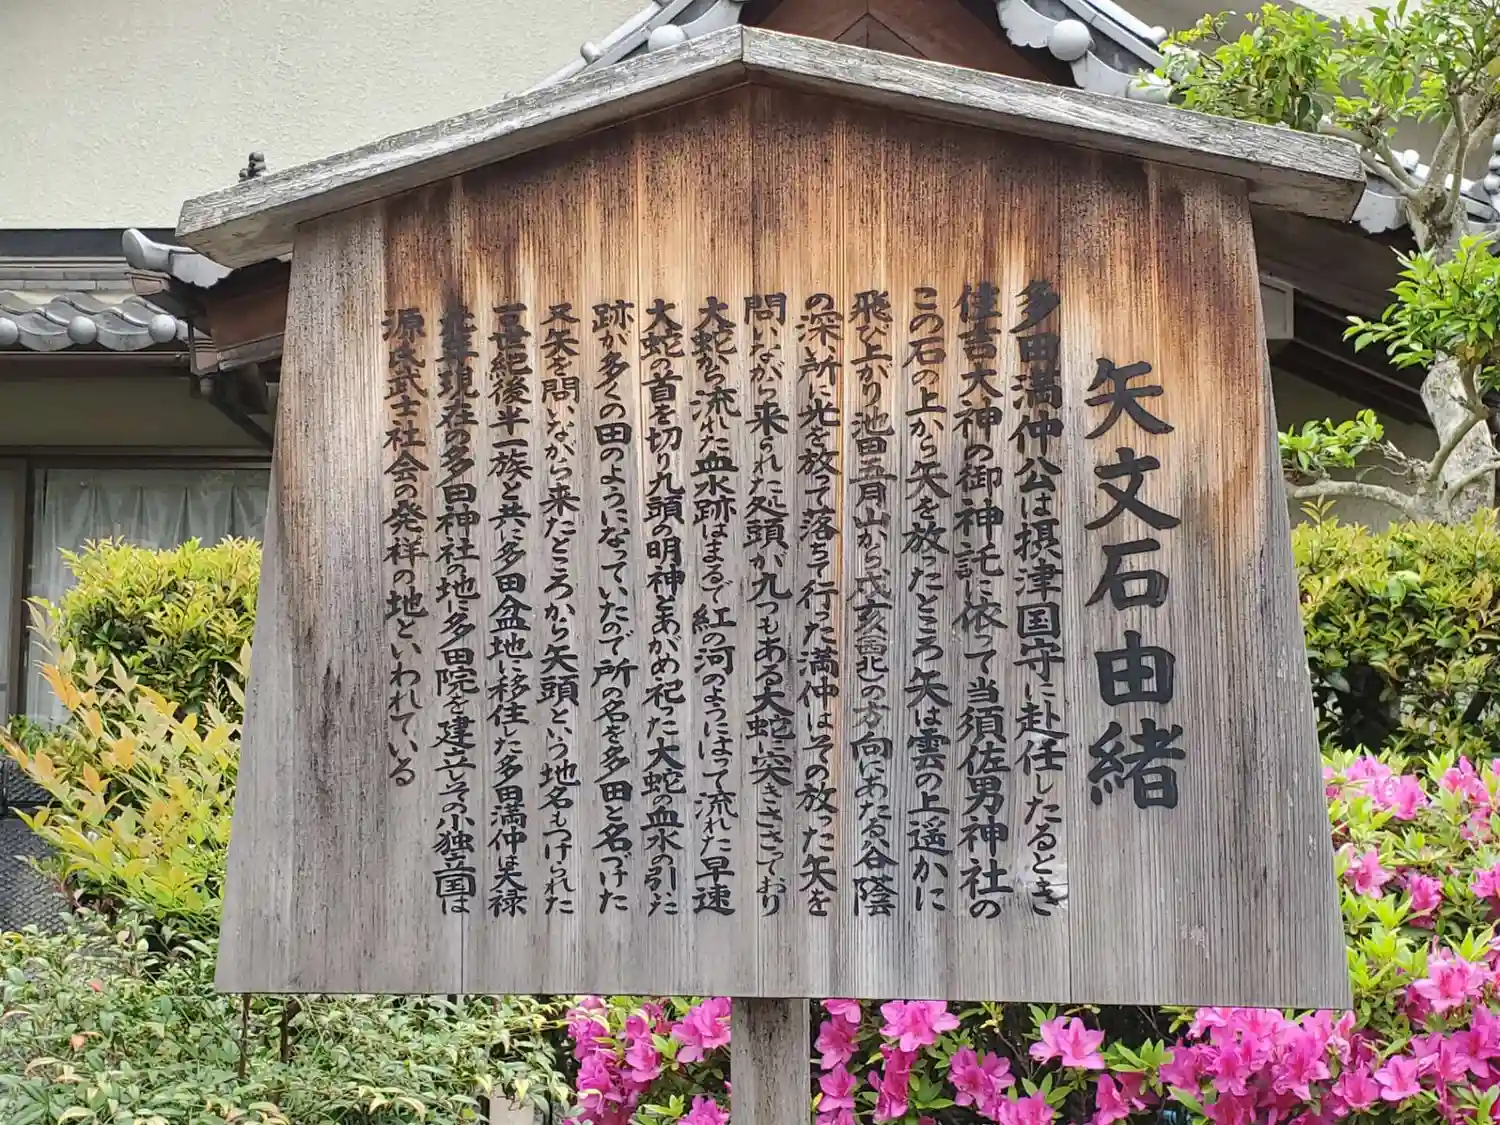 矢文石由緒
多田満仲公は摂津国守に赴任したるとき
住吉大神の御神託に依って当須佐男神社の
この石の上から矢を放ったところ矢は雲の上遥かに
飛び上がり池田五月山から戌亥(西北)の方向にあたる谷蔭
の深所に光を放って落ちて行った満仲はその放った矢を
問いながら来られた処頭が九つもある大蛇に突きささっており
大蛇から流れた血水跡はまるで紅の河のようにはって流れた早速
大蛇の首を切り九頭の明神とあがめ祀った大蛇の血水の引いた
跡が多くの田のようになっていたので所の名を多田と名づけた
又矢を問いながら来たところから矢頭という地名もつけられた
一世紀後半一族と共に多田盆地に移住した多田満仲は天禄
元年現在の多田神社の地に多田院を建立しその小独立国は
源氏武士社会の発祥の地といわれている